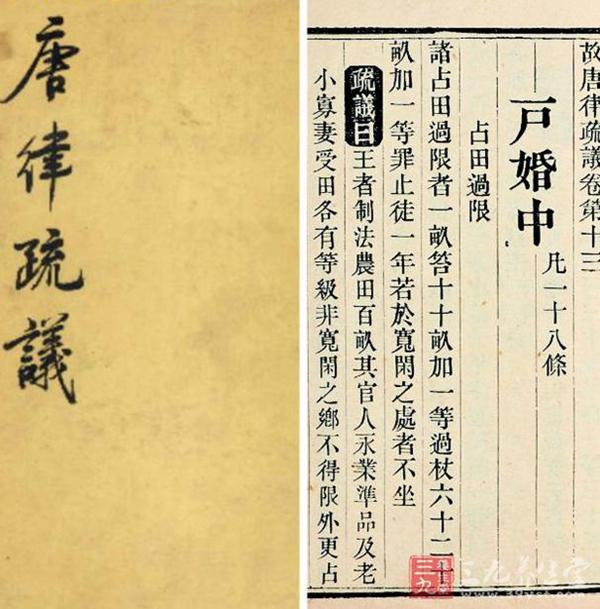 唐律疏議
故唐律疏議卷第十三
戸婚中
凡一十八條
占田過限
諸占田過限者一畝笞十十畝加一等過杖六十二十
畝加一等罪止徒一年若於寬閑之處者不坐
疏議曰王者制法農田百畝其官人永業準品及老
小寡妻受田各有等級非寬閑之鄉不得限外更占
三九养生堂